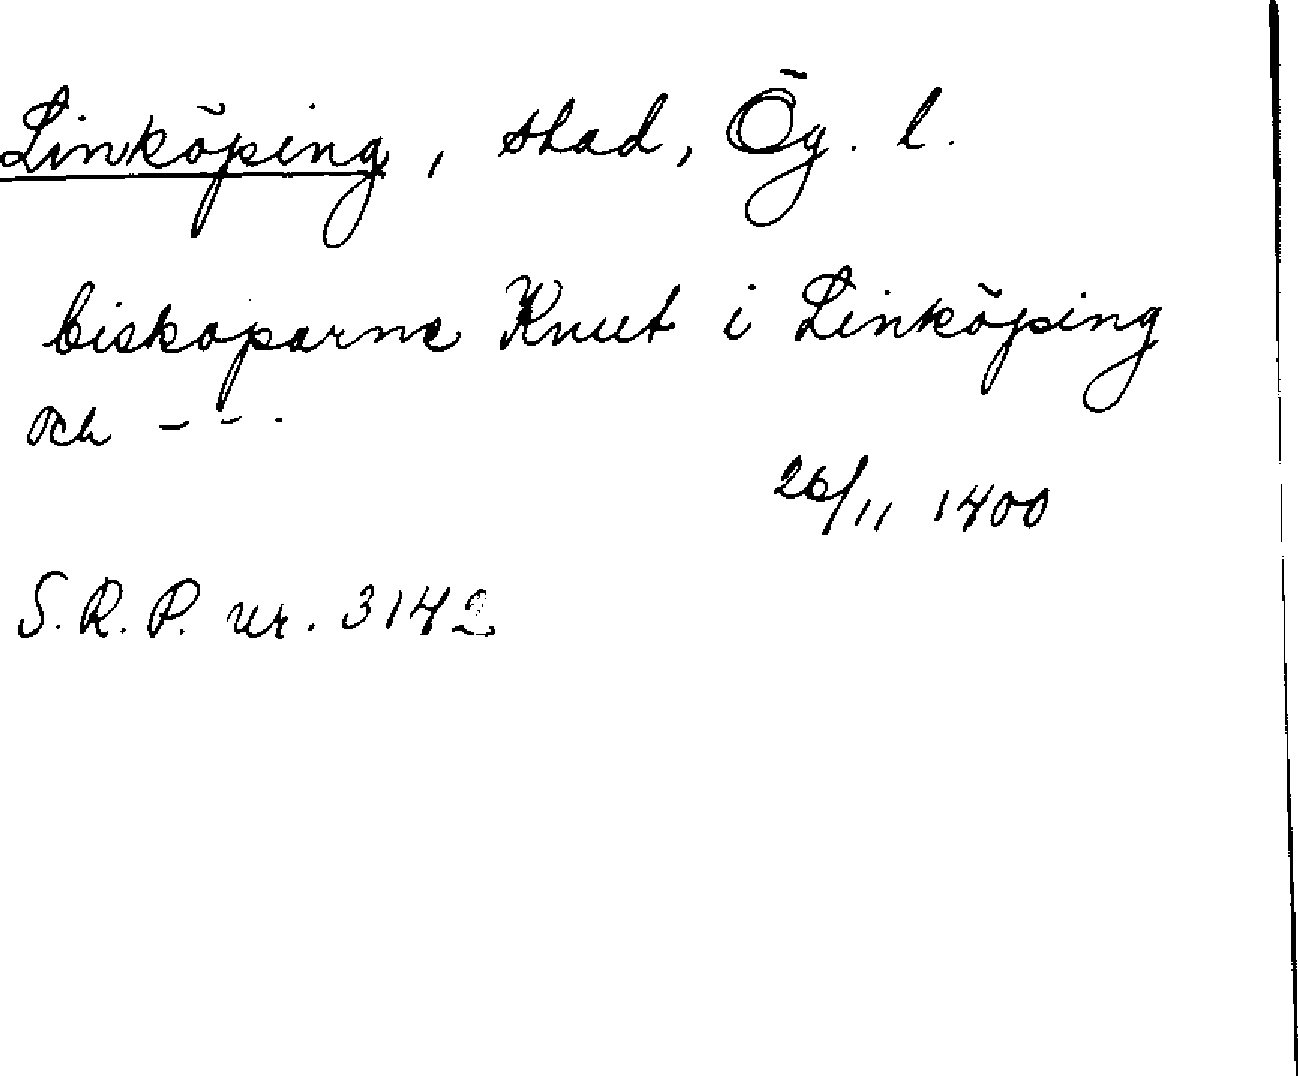 Linköping, stad, Ög. l.
biskoparne Knut i Linköping
och - - -
26/11 1400
S. R. P. nr. 3142